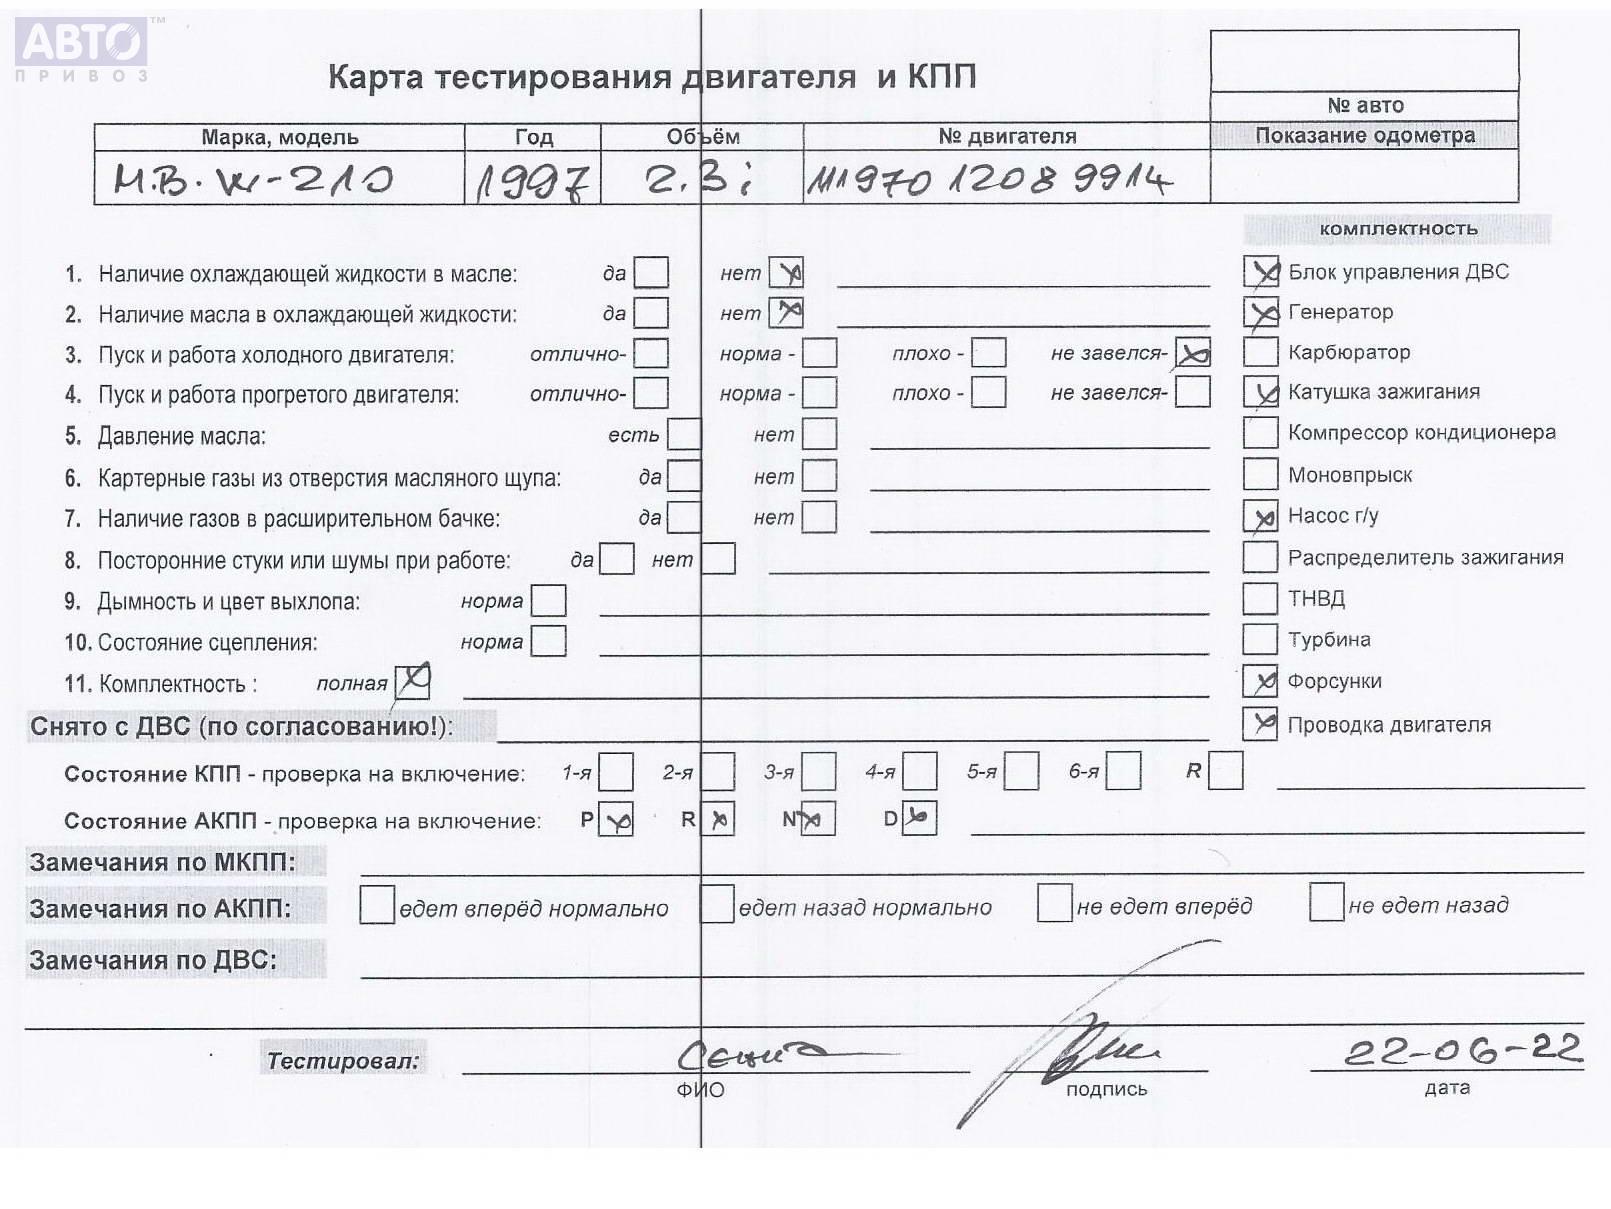 АВТО™
ПРИВОЗ
Карта тестирования двигателя и КПП
№ авто
Марка, модель Год Объём № двигателя Показание одометра
M.B. W-210 1997 2.3 i 111970 1208 9914
комплектность
1. Наличие охлаждающей жидкости в масле: да нет Блок управления ДВС
2. Наличие масла в охлаждающей жидкости: да нет Генератор
3. Пуск и работа холодного двигателя: отлично- норма - плохо - не завелся- Карбюратор
4. Пуск и работа прогретого двигателя: отлично- норма - плохо - не завелся- Катушка зажигания
5. Давление масла: есть нет Компрессор кондиционера
6. Картерные газы из отверстия масляного щупа: да нет Моновпрыск
7. Наличие газов в расширительном бачке: да нет Насос г/у
8. Посторонние стуки или шумы при работе: да нет Распределитель зажигания
9. Дымность и цвет выхлопа: норма ТНВД
10. Состояние сцепления: норма Турбина
11. Комплектность : полная Форсунки
Снято с ДВС (по согласованию!): Проводка двигателя
Состояние КПП - проверка на включение: 1-я 2-я 3-я 4-я 5-я 6-я R
Состояние АКПП - проверка на включение: P R N D
Замечания по МКПП:
Замечания по АКПП: едет вперёд нормально едет назад нормально не едет вперёд не едет назад
Замечания по ДВС:
Тестировал: 22-06-22
ФИО подпись дата